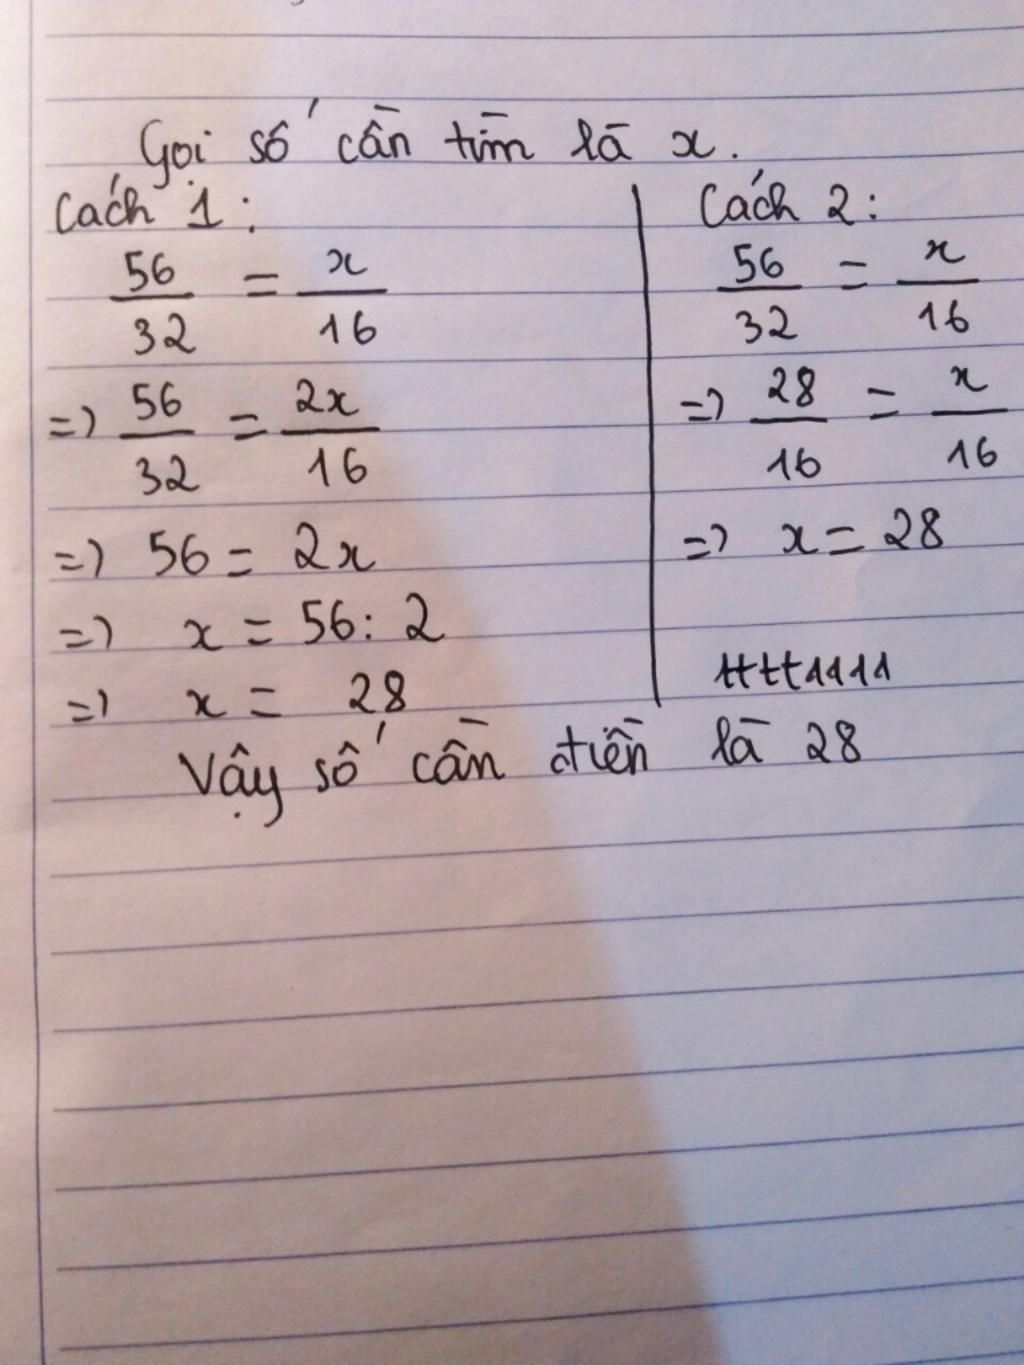 Gọi số cần tìm là x.
Cách 1:
56/32 = x/16
=> 56/32 = 2x/16
=> 56 = 2x
=> x = 56 : 2
=> x = 28
Cách 2:
56/32 = x/16
=> 28/16 = x/16
=> x = 28
tttt1111
Vậy số cần điền là 28